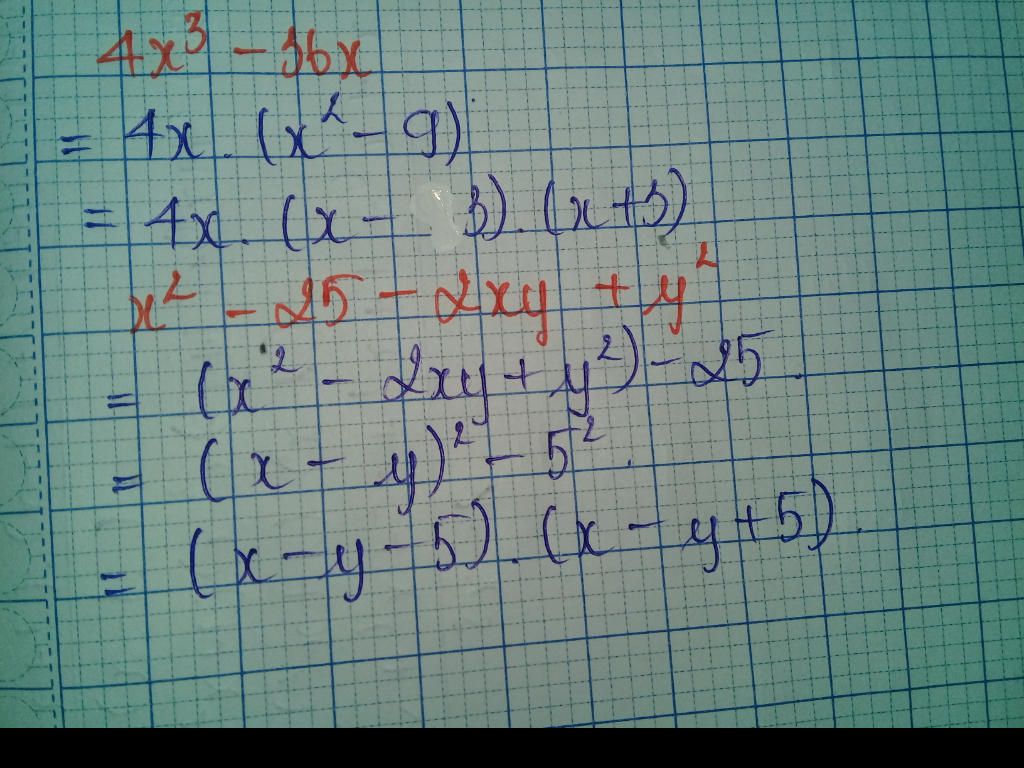 4x³ - 36x
= 4x . (x² - 9)
= 4x . (x - 3) . (x + 3)
x² - 25 - 2xy + y²
= (x² - 2xy + y²) - 25 .
= (x - y)² - 5² .
= (x - y - 5) . (x - y + 5) .